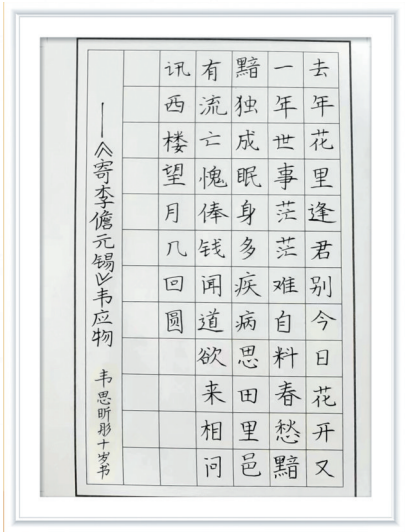 去年花里逢君别今日花开又
一年世事茫茫难自料春愁黯
黯独成眠身多疾病思田里邑
有流亡愧俸钱闻道欲来相问
讯西楼望月几回圆
——《寄李儋元锡》韦应物
韦思昕彤十岁书